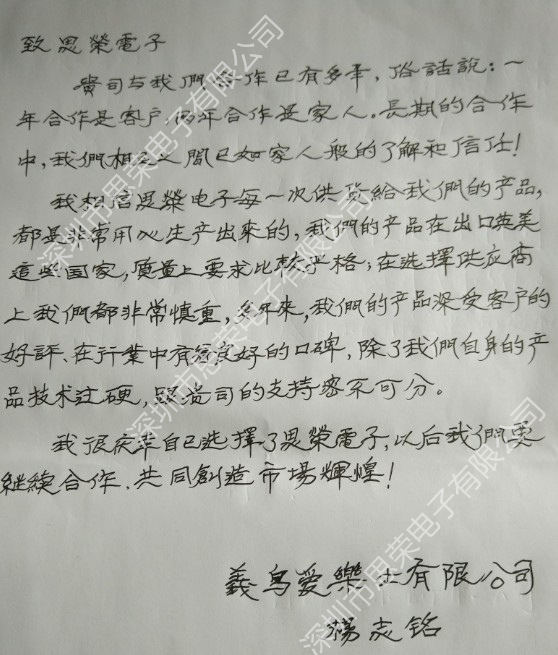 致思榮電子
貴司与我們合作已有多年，俗話說：一
年合作是客户，两年合作是家人。長期的合作
中，我們相互之間已如家人般的了解和信任！
我相信思榮电子每一次供货給我們的產品，
都是非常用心生产出來的，我們的产品在出口英美
這些国家，质量上要求比較严格，在选擇供应商
上我們都非常慎重，多年來，我們的产品深受客户的
好評、在行業中有良好的口碑，除了我們自身的产
品技术过硬，跟贵司的支持密不可分。
我很庆幸自己选擇了思榮電子，以后我們要
継續合作、共同創造市場輝煌！
義烏爱樂士有限公司
楊志铭
深圳市思荣电子有限公司
深圳市思荣电子有限公司
深圳市思荣电子有限公司
深圳市思荣电子有限公司